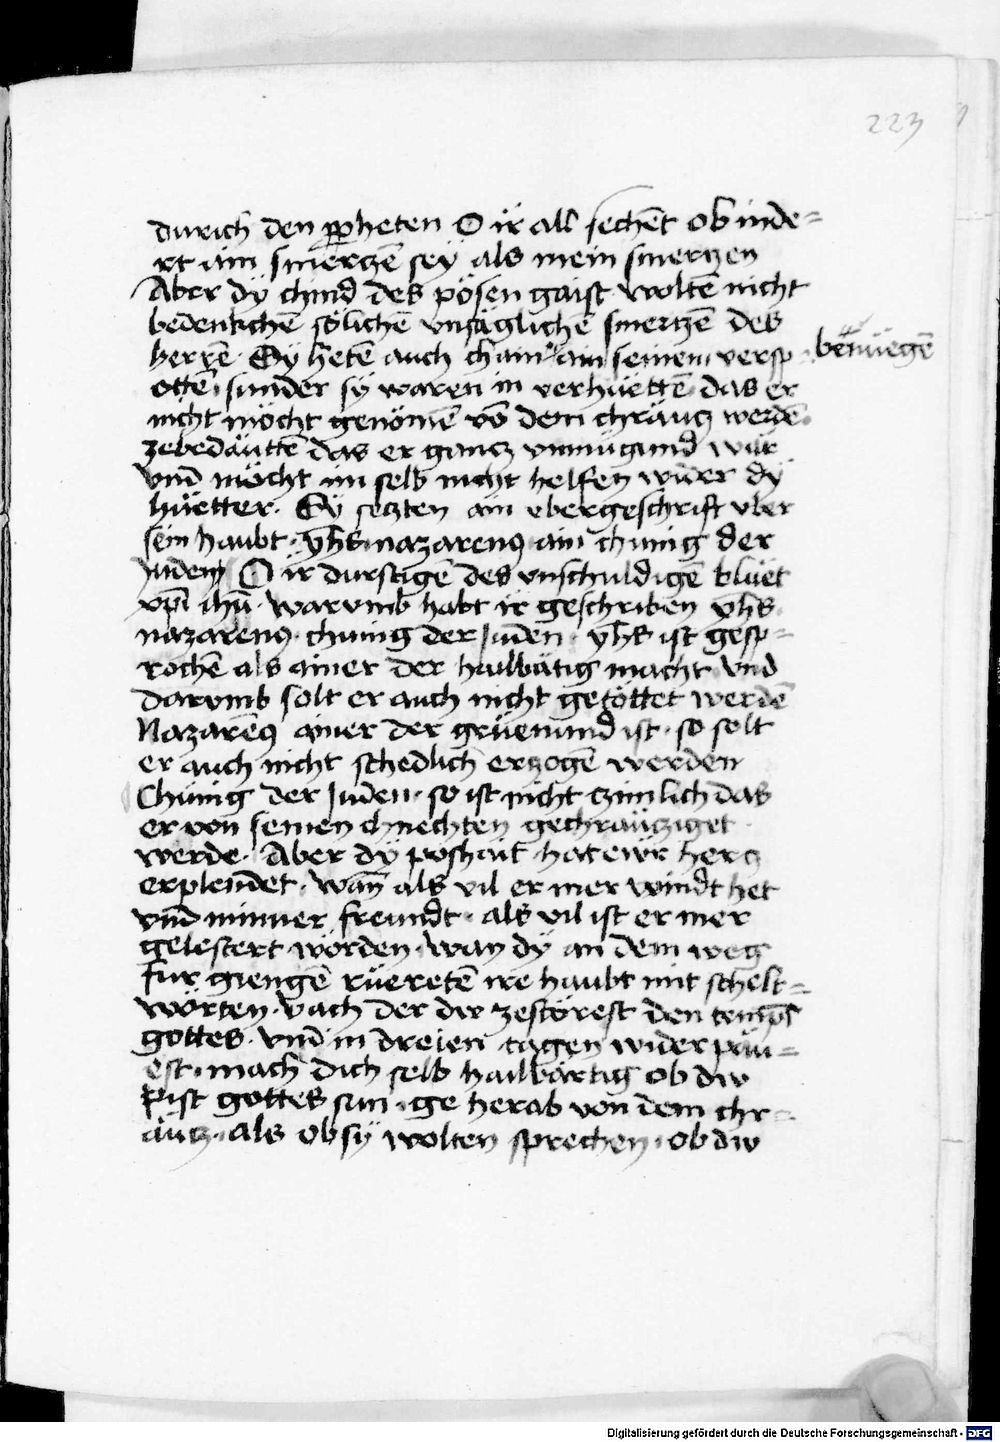 223
durich den ꝓpheten O ir all sechēt ob inde=
rt ain smerczē sey als mein smerczen
Aber dÿ chind des pösen gaist woltē nicht
bedenkchē sölichē vnsäglichē smertzē des
herrē · Sÿ hetē auch chain ain seinem versp · benüegē
ottē · sunder sÿ waren in verhüettē das er
nicht möcht genömē vō dem chräucz werdē ·
zebedäuttē das er gancz vnmügund wär
vnd möcht im selb nicht helfen wider dÿ
hüetter · Sÿ seczten ain ebergeschrift vber
sein haubt · yh̄s nazarenꝰ ain chunig der
Juden O ir durstigē des vnschuldigē blüet
xp̄i ihū · warumb habt ir geschriben yh̄s
nazarenꝰ · chunig der Juden · yh̄s ist gesp=
rochē als ainer der hailbätig macht vnd
darumb solt er auch nicht getöttet werdē
Nazarēꝰ ainer der grüenund ist · so solt
er auch nicht schedlich erzogē werden
Chunig der Juden · so ist nicht czimlich das
er von seinen chnechten gechräucziget
werde · Aber dÿ poshait hat ewr hercz
erplendet · wañ als vil er mer windt het
vnd minner freundt · als vil ist er mer
gelestert wörden · wan dÿ an dem weg
fur giengē rüeretē ire haubt mit schelt=
wörten · vach der dw zestörest den templ
gottes · vnd in dreien tagen wider päu=
est · mach dich selb hailbärtig ob dw
pist gottes sun · ge herab von dem chr=
äucz · als ob sÿ wolten sprechen · ob dw
Digitalisierung gefördert durch die Deutsche Forschungsgemeinschaft - DFG